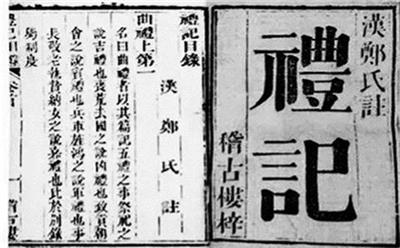 漢鄭氏註
禮記
稽古樓梓
禮記目錄
曲禮上第一
漢鄭氏註
名曰曲禮者以其篇記五禮之事祭祀之
說吉禮也喪荒去國之說凶禮也致貢朝
會之說賓禮也兵車旌鴻之說軍禮也事
長敬老執贄納女之說嘉禮也此於別錄
屬制度